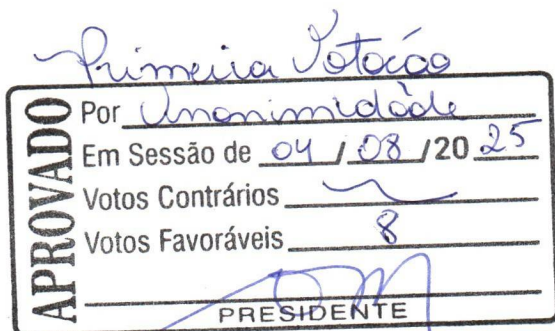 Primeira Votação
APROVADO
Por Unanimidade
Em Sessão de 04 / 08 / 20 25
Votos Contrários
Votos Favoráveis 8
PRESIDENTE